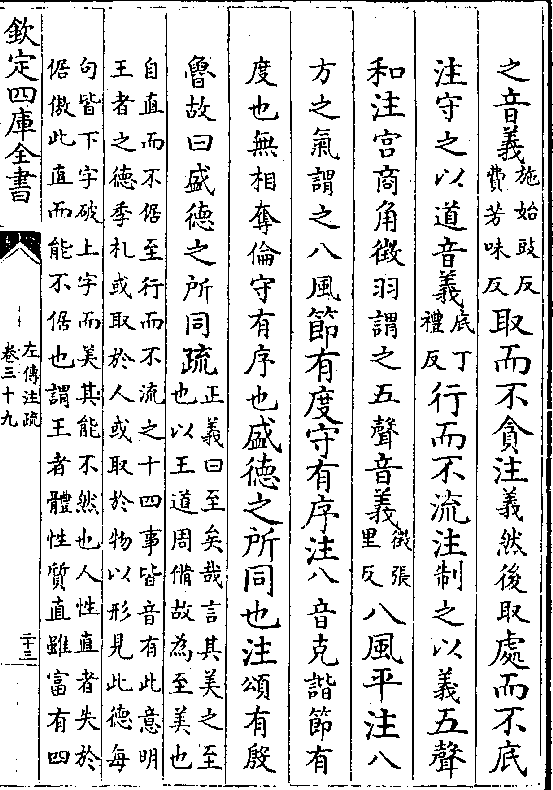 之音義施始豉反費芳味反取而不貪注義然後取處而不底
注守之以道音義底丁禮反行而不流注制之以義五聲
和注宮商角徵羽謂之五聲音義徵張里反八風平注八
方之氣謂之八風節有度守有序注八音克諧節有
度也無相奪倫守有序也盛德之所同也注頌有殷
魯故曰盛德之所同疏正義曰至矣哉言其美之至也以王道周備故為至美也
自直而不倨至行而不流之十四事皆音有此意明
王者之德季札或取於人或取於物以形見此德每
句皆下字破上字而美其能不然也人性直者失於
倨傲此直而能不倨也謂王者體性質直雖富有四
欽定四庫全書
左傳注疏
卷三十九
二十三